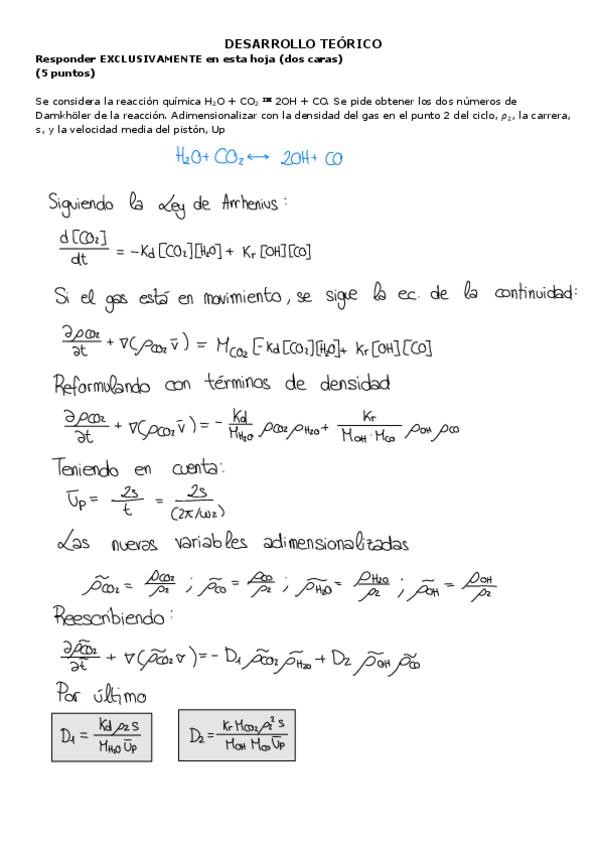 DESARROLLO TEÓRICO
Responder EXCLUSIVAMENTE en esta hoja (dos caras)
(5 puntos)
Se considera la reacción química H₂O + CO₂ ™ 2OH + CO. Se pide obtener los dos números de
Damkhöler de la reacción. Adimensionalizar con la densidad del gas en el punto 2 del ciclo, ρ₂, la carrera,
s, y la velocidad media del pistón, Up
H₂O + CO₂ ⟷ 2OH + CO
Siguiendo la Ley de Arrhenius:
d[CO₂]/dt = -Kd [CO₂][H₂O] + Kr [OH][CO]
Si el gas está en movimiento, se sigue la ec. de la continuidad:
∂ρco₂/∂t + ∇(ρco₂ v̄) = Mco₂ [-Kd[CO₂][H₂O] + Kr[OH][CO]
Reformulando con términos de densidad
∂ρco₂/∂t + ∇(ρco₂ v̄) = - Kd/M_H₂O ρco₂ ρH₂O + Kr/(M_OH · M_CO) ρOH ρco
Teniendo en cuenta:
Ūp = 2s/t = 2s/(2π/ω₂)
Las nuevas variables adimensionalizadas
ρ̃co₂ = ρco₂/ρ₂ ; ρ̃co = ρco/ρ₂ ; ρ̃H₂O = ρH₂O/ρ₂ ; ρ̃OH = ρOH/ρ₂
Reescribiendo:
∂ρ̃co₂/∂t̃ + ∇(ρ̃co₂ v) = - D₁ ρ̃co₂ ρ̃H₂O + D₂ ρ̃OH ρ̃co
Por último
D₁ = Kd ρ₂ s / M_H₂O Ūp D₂ = Kr Mco₂ ρ₂² s / M_OH M_CO Ūp